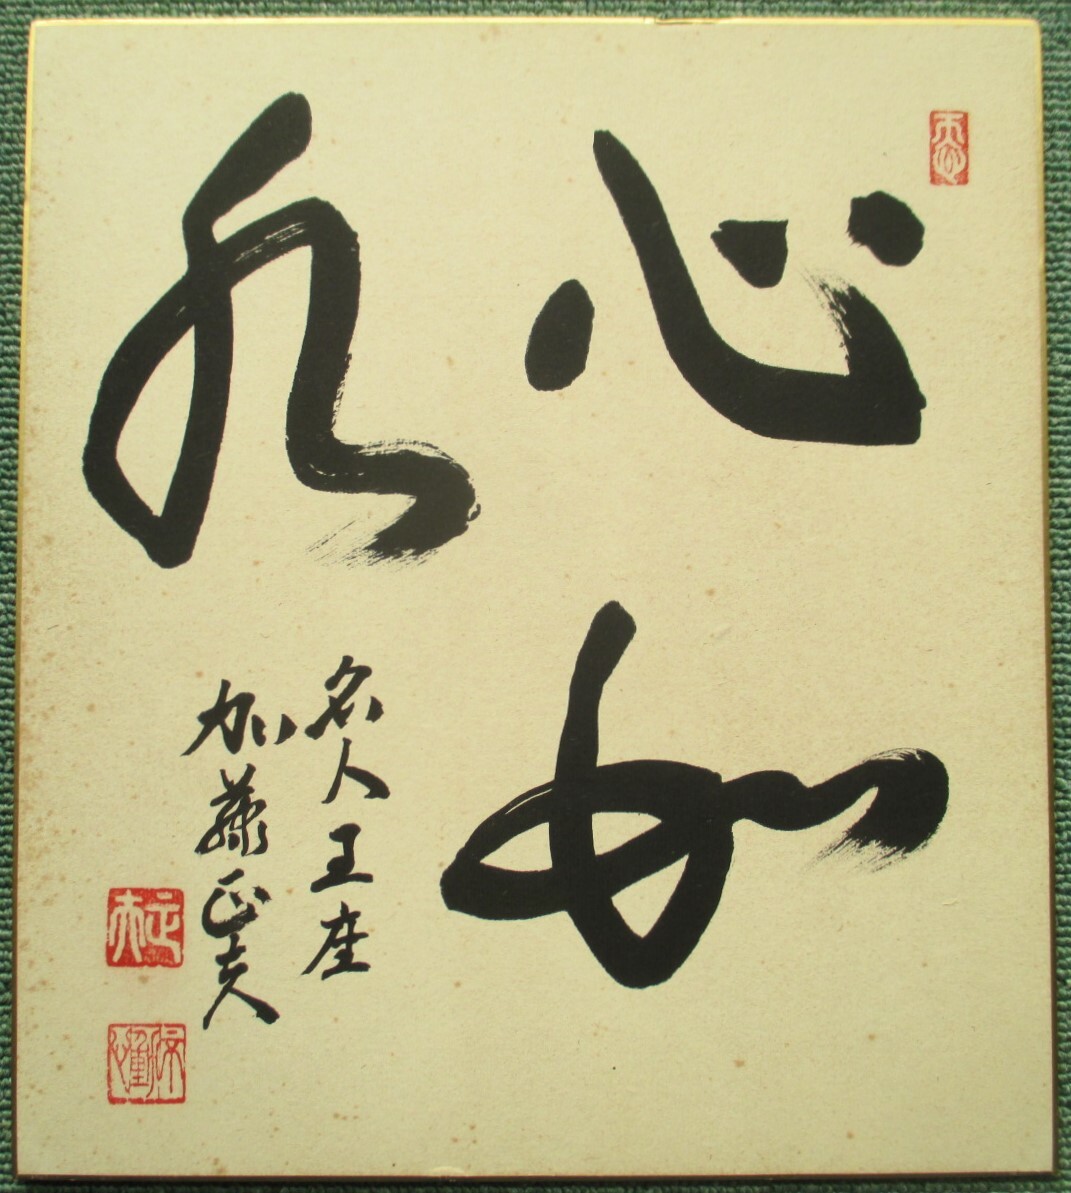 心如
水
名人王座
加藤正夫